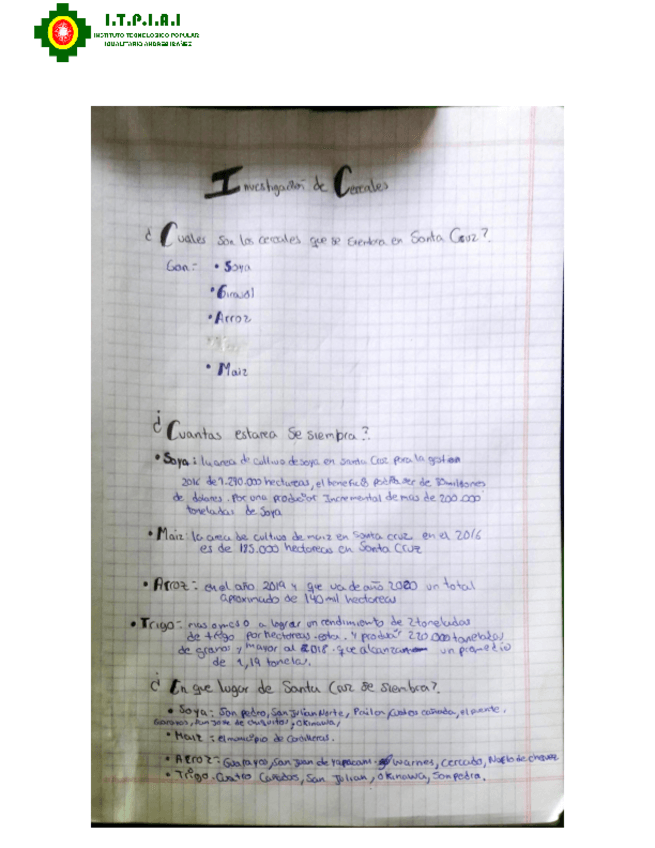 I.T.P.I.A.I
INSTITUTO TECNOLOGICO POPULAR
IGUALITARIO ANDRES IBAÑEZ
Investigación de Cereales
¿Cuales son los cereales que se siembra en Santa Cruz?
Son:
• Soya
• Girasol
• Arroz
• Maiz
¿Cuantas estarea se siembra?
• Soya: la area de cultivo de soya en Santa Cruz para la gestion
2016 de 1.290.000 hectareas, el beneficio podria ser de millones
de dolares. Por una produccion Incremental de mas de 200.000
toneladas de Soya
• Maiz: la area de cultivo de maiz en Santa cruz en el 2016
es de 185.000 hectareas en Santa Cruz
• Arroz: en el año 2019 y que va de año 2020 un total
aproximado de 140 mil hectareas
• Trigo: mas o meso a lograr un rendimiento de 2 toneladas
de trigo por hectareas esta. y producir 220.000 toneladas
de granos y mayor al 2018. que alcanzan un promedio
de 1,19 tonelas.
¿En que lugar de Santa Cruz se siembra?
• Soya: San pedro, San Julian Norte, Pailon, Cuatro cañada, el puente,
San jose de chiquitos, Okinawa,
• Maiz: el municipio de Cordilleras.
• Arroz: Guarayos, San Juan de Yapacani, Warnes, Cercado, Ñuflo de chavez
• Trigo: Cuatro Cañadas, San Julian, Okinawa, San pedro.